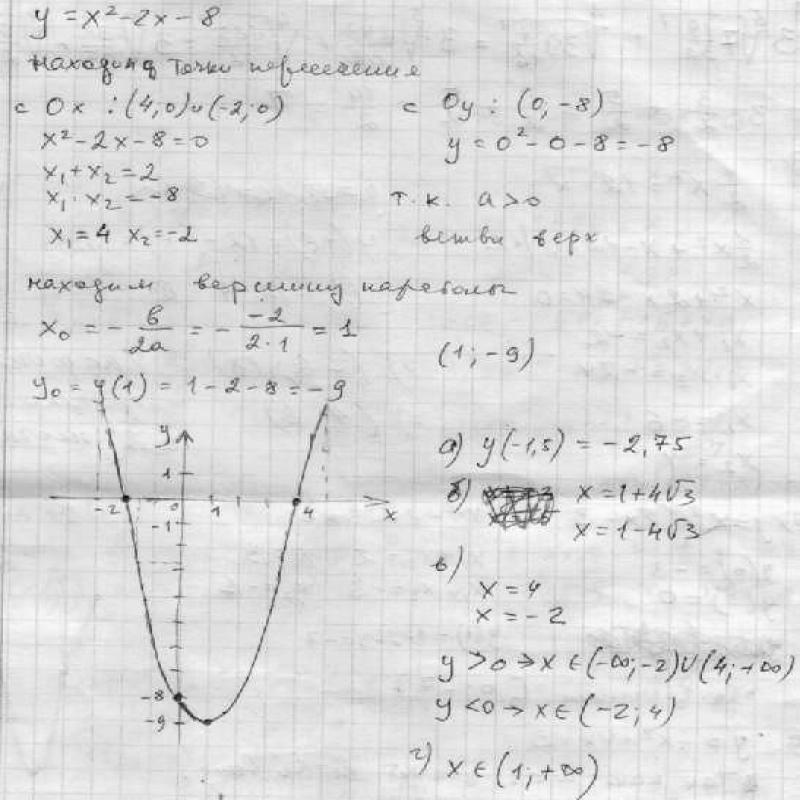 y = x² - 2x - 8
находим точки пересечения
с Ox : (4,0) и (-2;0)
x² - 2x - 8 = 0
x₁ + x₂ = 2
x₁ · x₂ = -8
x₁ = 4 x₂ = -2
с Oy : (0, -8)
y = 0² - 0 - 8 = -8
т.к. a > 0
ветви верх
находим вершину параболы
x₀ = - b/2a = - -2/2·1 = 1
(1; -9)
y₀ = y(1) = 1 - 2 - 8 = -9
y
1
-2
0
1
4
x
-1
-8
-9
а) y(-1,5) = -2,75
б) x = 1 + 4√3
x = 1 - 4√3
в)
x = 4
x = -2
y > 0 → x ∈ (-∞; -2) ∪ (4; +∞)
y < 0 → x ∈ (-2; 4)
г) x ∈ (1; +∞)